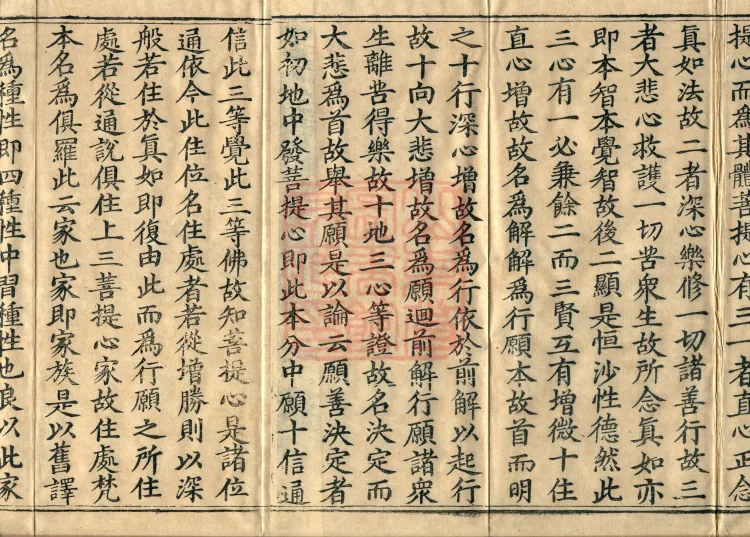 提心而為其體菩提心有三一者直心正念
真如法故二者深心樂修一切諸善行故三
者大悲心救護一切苦衆生故所念真如亦
即本智本覺智故後二顯是恒沙性德然此
三心有一必兼餘二而三賢互有增微十住
直心增故故名為解解為行願本故首而明
之十行深心增故名為行依於前解以起行
故十向大悲增故名為願迴前解行願諸衆
生離苦得樂故十地三心等證故名決定而
大悲為首故舉其願是以論云願善決定者
如初地中發菩提心即此本分中願十信通
信此三等覺此三等佛故知菩提心是諸位
通依今此住位名住處者若從增勝則以深
般若住於真如即復由此而為行願之所住
處若從通說俱住上三菩提心家故住處梵
本名為俱羅此云家也家即家族是以舊譯
名為種性即四種性中習種性也良以此家